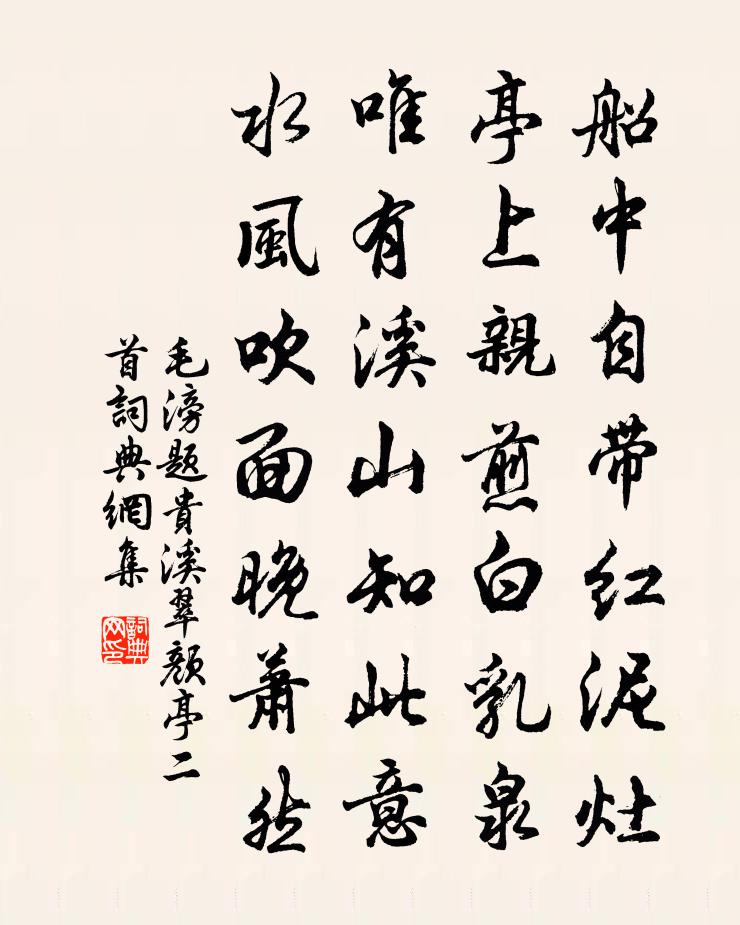 船中自带红泥灶
亭上親煎白乳泉
唯有溪山知此意
水風吹面晚蕭然
毛滂题貴溪翠顏亭二
首詞典網集
詞典
网印